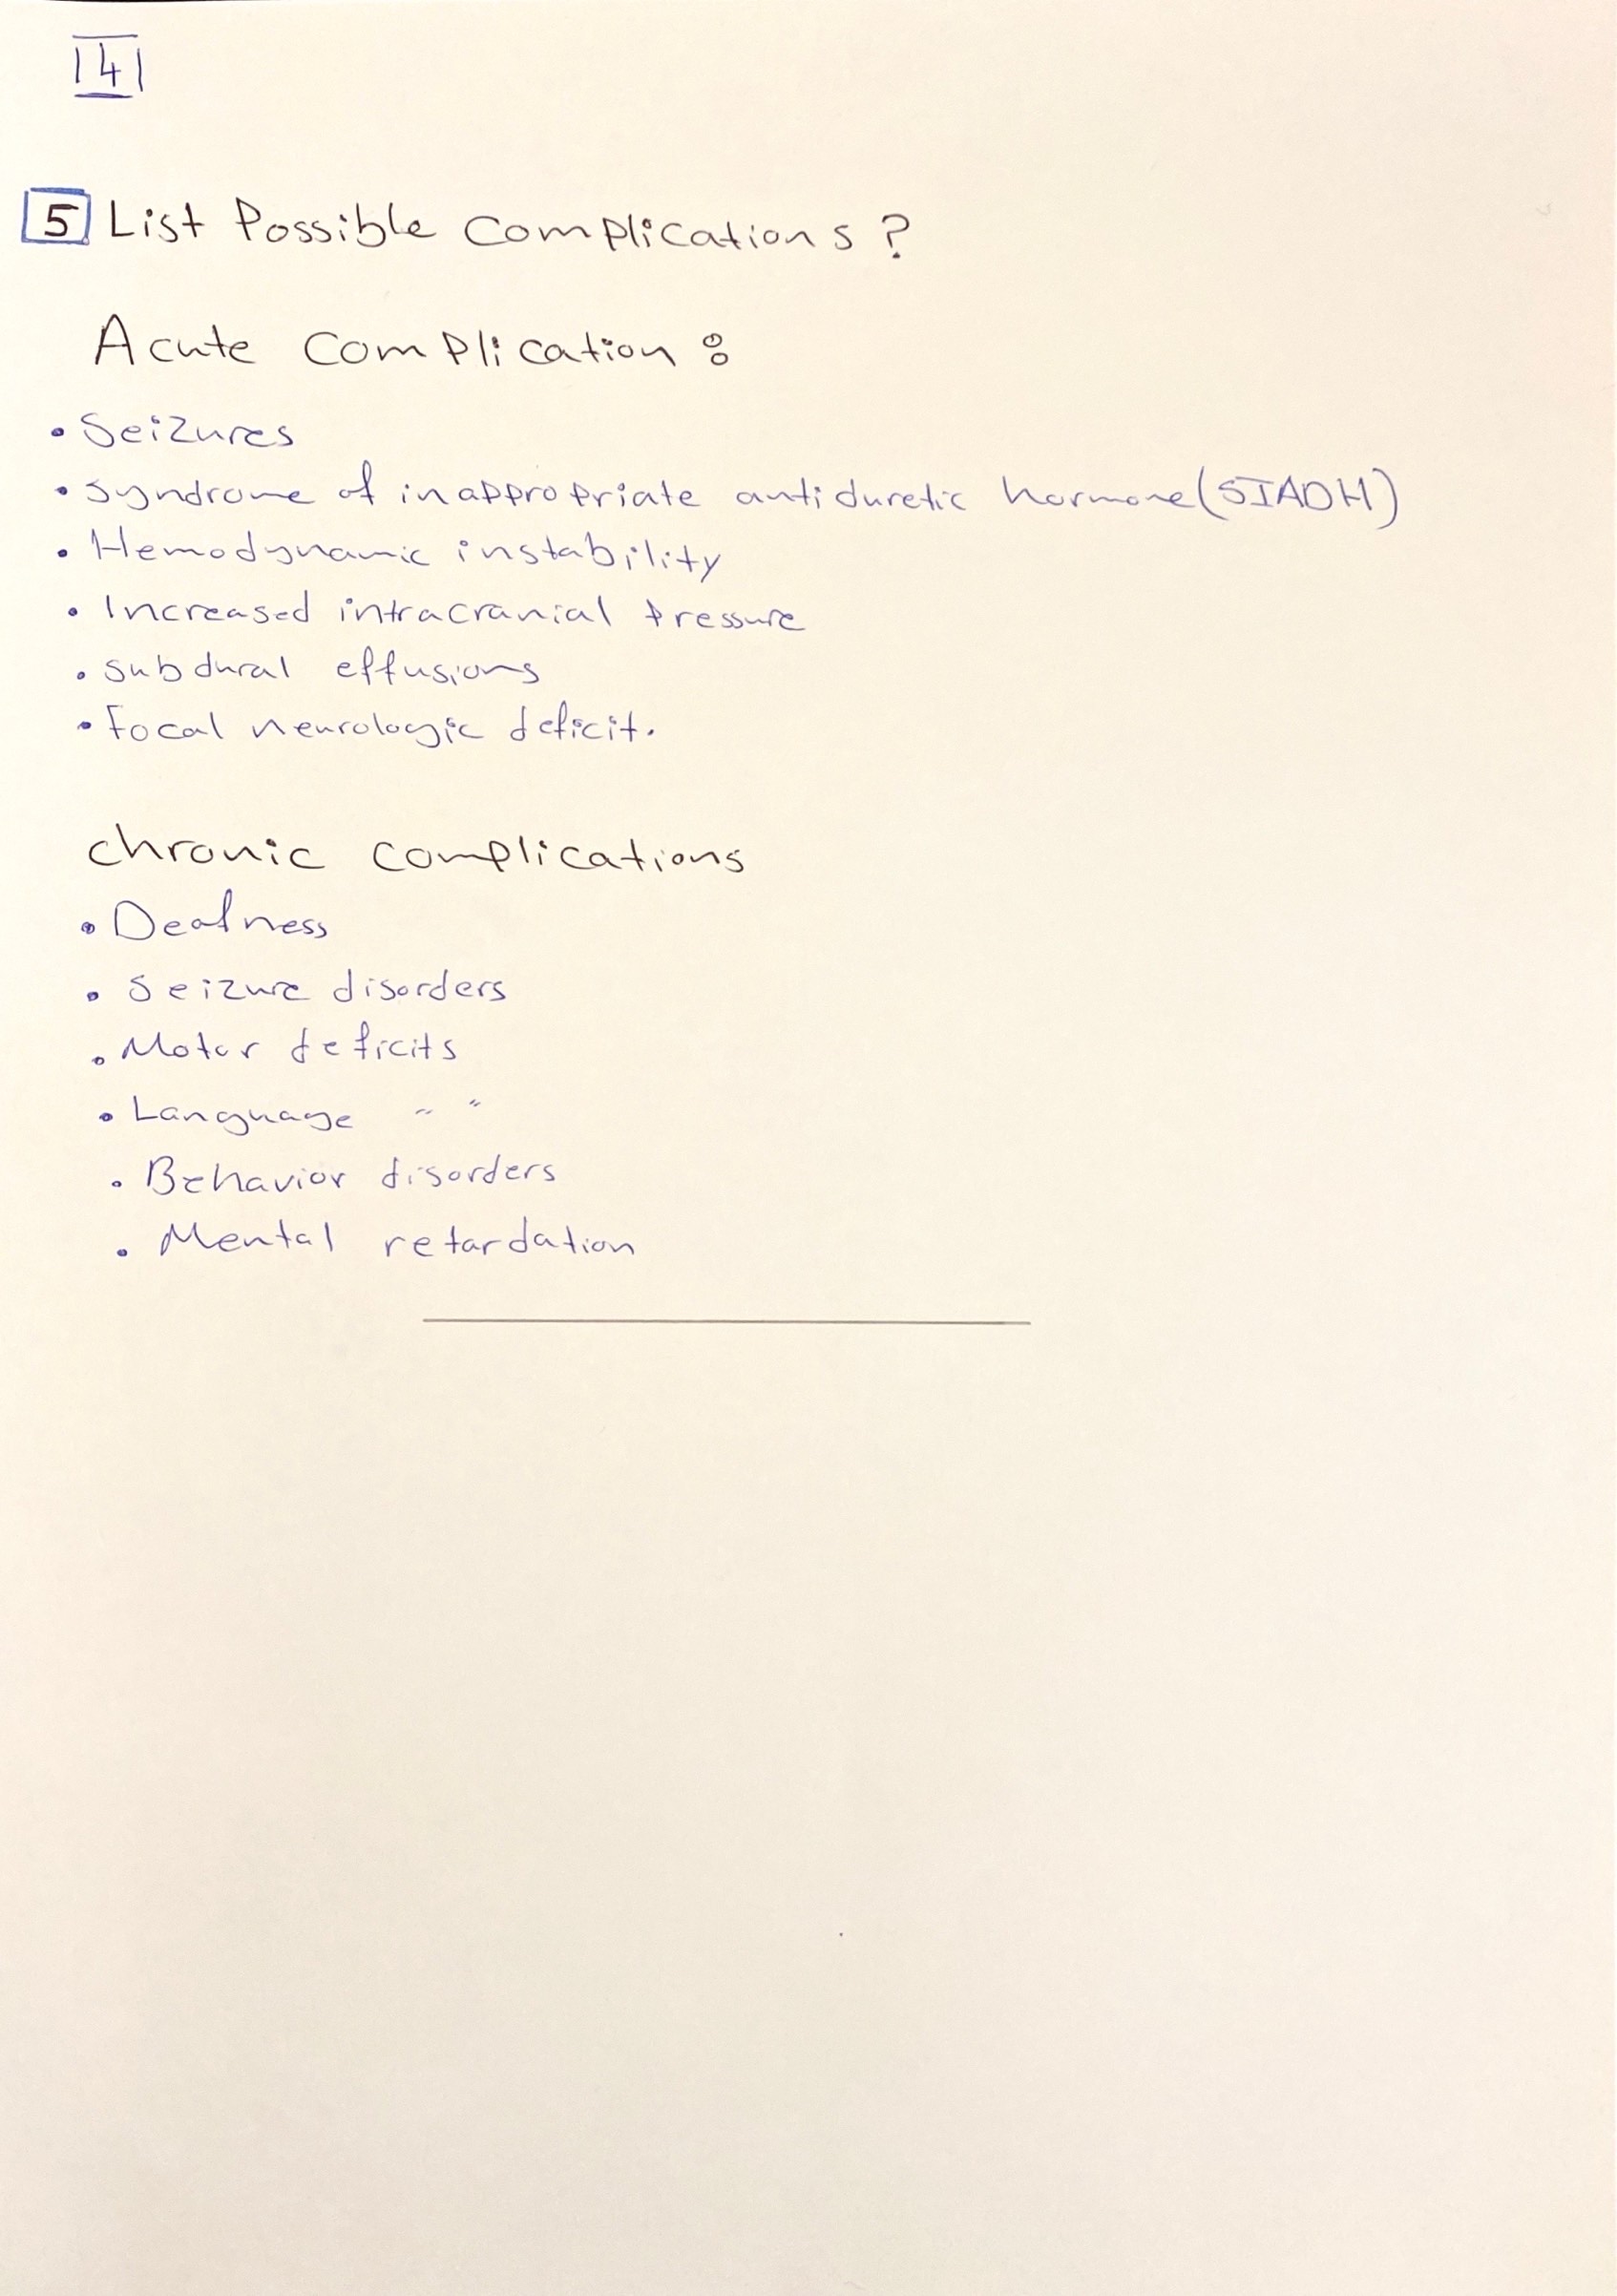 4
5 List Possible Complications ?
Acute Complication :
• Seizures
• Syndrome of inappropriate antiduretic hormone (SIADH)
• Hemodynamic instability
• Increased intracranial pressure
• subdural effusions
• Focal neurologic deficit.
chronic complications
• Deafness
• Seizure disorders
• Motor deficits
• Language " "
• Behavior disorders
• Mental retardation